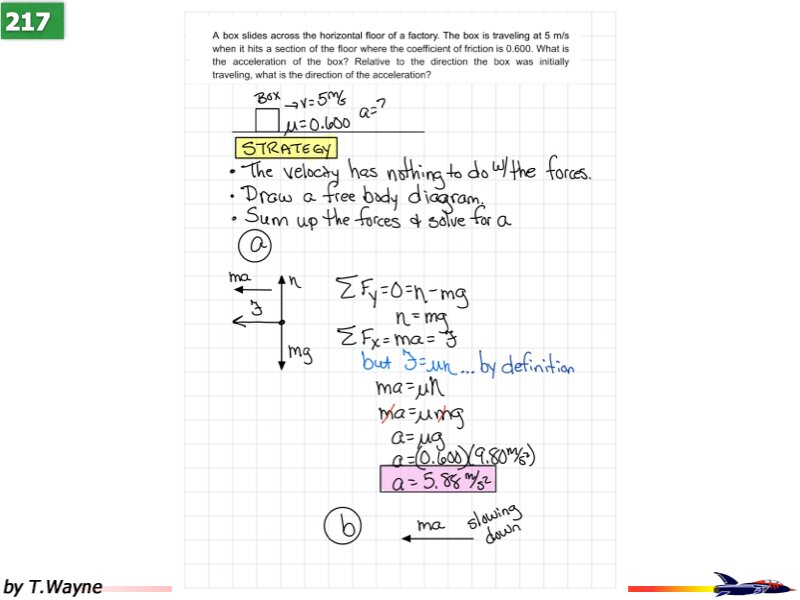 217
A box slides across the horizontal floor of a factory. The box is traveling at 5 m/s
when it hits a section of the floor where the coefficient of friction is 0.600. What is
the acceleration of the box? Relative to the direction the box was initially
traveling, what is the direction of the acceleration?
Box →v=5m/s a=?
μ=0.600
STRATEGY
• The velocity has nothing to do w/ the forces.
• Draw a free body diagram.
• Sum up the forces & solve for a
a
ma
n
ℱ
mg
ΣFy=0=n-mg
n=mg
ΣFx=ma=ℱ
but ℱ=μn...by definition
ma=μn
ma=μmg
a=μg
a=(0.600)(9.80m/s²)
a=5.88 m/s²
b
ma
slowing
down
by T.Wayne